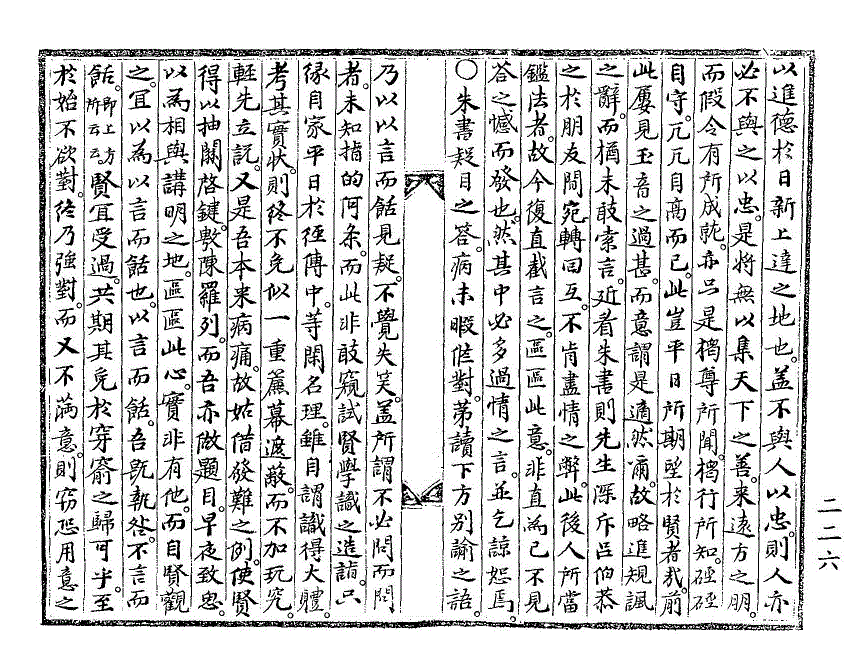 以進德於日新上達之地也盖不與人以忠則人亦
必不與之以忠是將無以集天下之善來遠方之朋
而假令有所成就亦只是獨尊所聞獨行所知硜硜
自守亢亢自高而已此豈平日所期望於賢者哉前
此屢見玉音之過甚而意謂是適然爾故略進規諷
之辭而猶未敢索言近看朱書則先生深斥呂伯恭
之於朋友間宛轉回互不肯盡情之弊此後人所當
鑑法者故今復直截言之區區此意非直為已不見
荅之憾而發也然其中必多過情之言並乞諒恕焉
○朱書疑目之答病未暇作對苐讀下方別諭之語
乃以以言而餂見疑不覺失笑盖所謂不必問而問
者未知指的何条而此非敢窺試賢學識之造詣只
緣自家平日於經傳中等閑名理雖自謂識得大體
考其實狀則終不免似一重簾幕遮蔽而不加玩究
輕先立說又是吾本来病痛故姑借發難之例使賢
得以抽關啓鍵敷陳羅列而吾亦做題目早夜致思
以為相與講明之地區區此心實非有他而自賢觀
之宜以為以言而餂也以言而餂吾旣執咎不言而
餂即上方所云云賢宜受過共期其免於穿窬之歸可乎至
於始不欲對終乃強對而又不滿意則竊恐用意之
二二六